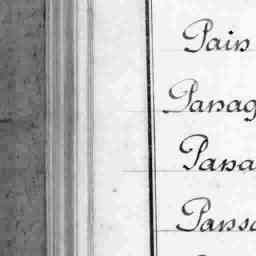 Pain
Panag
Pana
Pansa